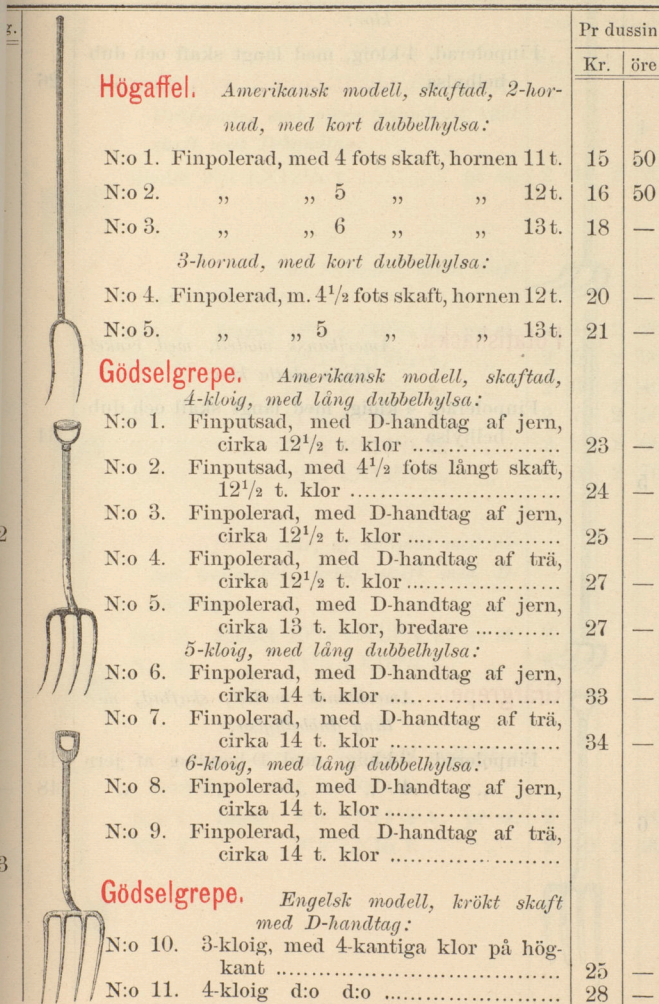 g.
Pr dussin
Kr. öre
Högaffel. Amerikansk modell, skaftad, 2-hor-
nad, med kort dubbelhylsa:
N:o 1. Finpolerad, med 4 fots skaft, hornen 11 t. 15 50
N:o 2. „ „ 5 „ „ 12 t. 16 50
N:o 3. „ „ 6 „ „ 13 t. 18 —
3-hornad, med kort dubbelhylsa:
N:o 4. Finpolerad, m. 4 1/2 fots skaft, hornen 12 t. 20 —
N:o 5. „ „ 5 „ „ 13 t. 21 —
Gödselgrepe. Amerikansk modell, skaftad,
4-kloig, med lång dubbelhylsa:
N:o 1. Finputsad, med D-handtag af jern,
cirka 12 1/2 t. klor .................... 23 —
N:o 2. Finputsad, med 4 1/2 fots långt skaft,
12 1/2 t. klor ............................ 24 —
N:o 3. Finpolerad, med D-handtag af jern,
cirka 12 1/2 t. klor .................... 25 —
N:o 4. Finpolerad, med D-handtag af trä,
cirka 12 1/2 t. klor .................... 27 —
N:o 5. Finpolerad, med D-handtag af jern,
cirka 13 t. klor, bredare ............ 27 —
5-kloig, med lång dubbelhylsa:
N:o 6. Finpolerad, med D-handtag af jern,
cirka 14 t. klor ....................... 33 —
N:o 7. Finpolerad, med D-handtag af trä,
cirka 14 t. klor ....................... 34 —
6-kloig, med lång dubbelhylsa:
N:o 8. Finpolerad, med D-handtag af jern,
cirka 14 t. klor .......................
N:o 9. Finpolerad, med D-handtag af trä,
cirka 14 t. klor .......................
Gödselgrepe. Engelsk modell, krökt skaft
med D-handtag:
N:o 10. 3-kloig, med 4-kantiga klor på hög-
kant ...................................... 25 —
N:o 11. 4-kloig d:o d:o ........................ 28 —
2
3